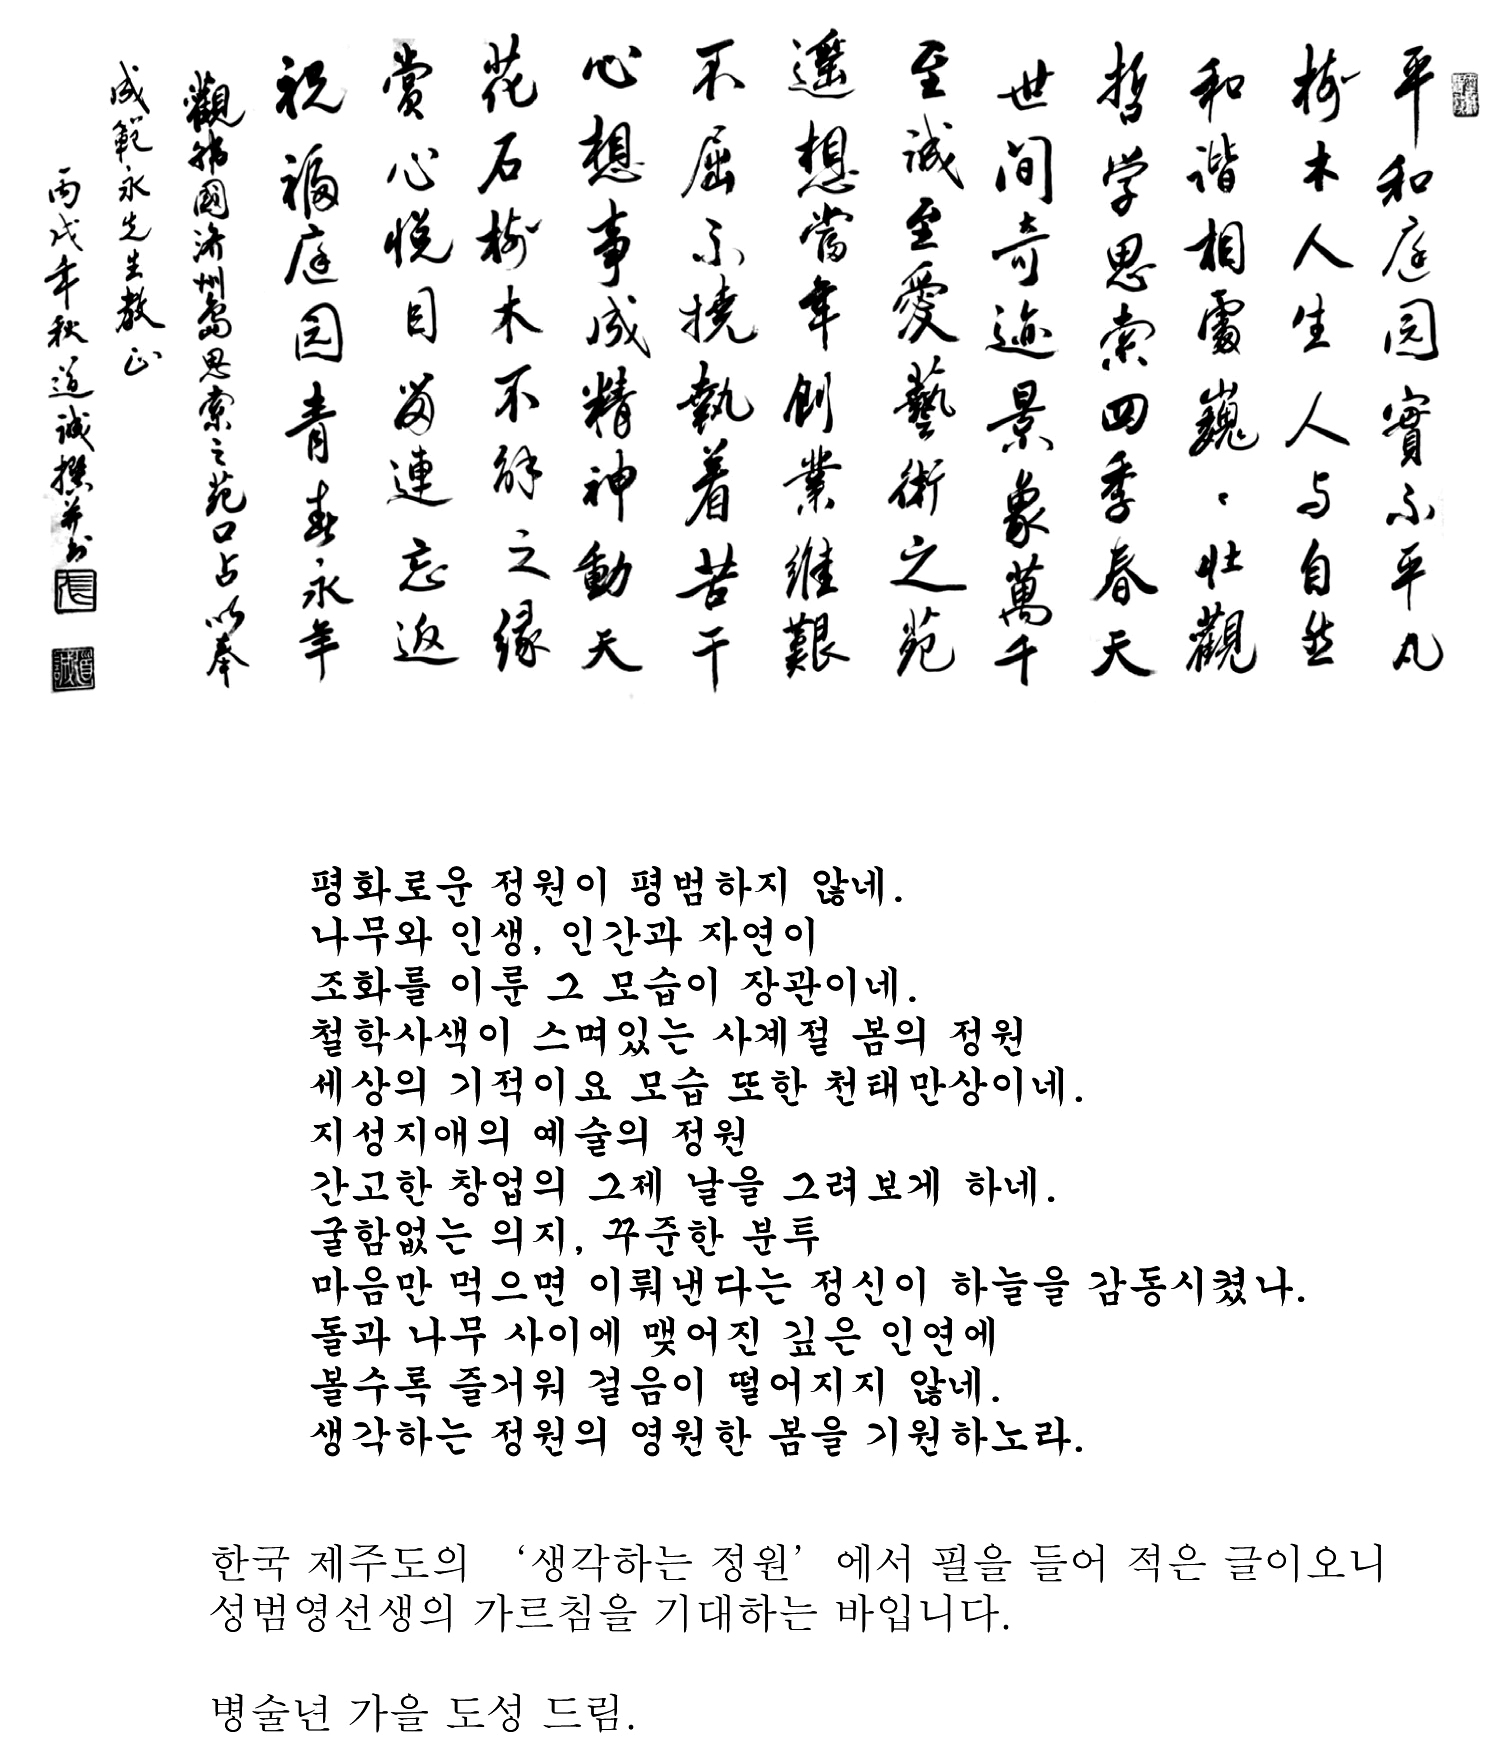 平和庭园實不平凡
树木人生人与自然
和谐相處巍々壮觀
哲学思索四季春天
世间奇迹景象萬千
至诚至愛藝術之苑
遥想當年創業维艱
不屈不撓執着苦干
心想事成精神動天
花石树木不解之缘
赏心悦目留連忘返
祝福庭园青春永年
觀韩國济州島思索之苑口占以奉
成範永先生教正
丙戌年秋道诚撰并书
평화로운 정원이 평범하지 않네.
나무와 인생, 인간과 자연이
조화를 이룬 그 모습이 장관이네.
철학사색이 스며있는 사계절 봄의 정원
세상의 기적이요 모습 또한 천태만상이네.
지성지애의 예술의 정원
간고한 창업의 그제 날을 그려보게 하네.
굴함없는 의지, 꾸준한 분투
마음만 먹으면 이뤄낸다는 정신이 하늘을 감동시켰나.
돌과 나무 사이에 맺어진 깊은 인연에
볼수록 즐거워 걸음이 떨어지지 않네.
생각하는 정원의 영원한 봄을 기원하노라.
한국 제주도의 ‘생각하는 정원’에서 필을 들어 적은 글이오니
성범영선생의 가르침을 기대하는 바입니다.
병술년 가을 도성 드림.